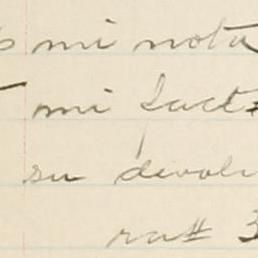 mi nota
mi fact
su devol
ra# 3